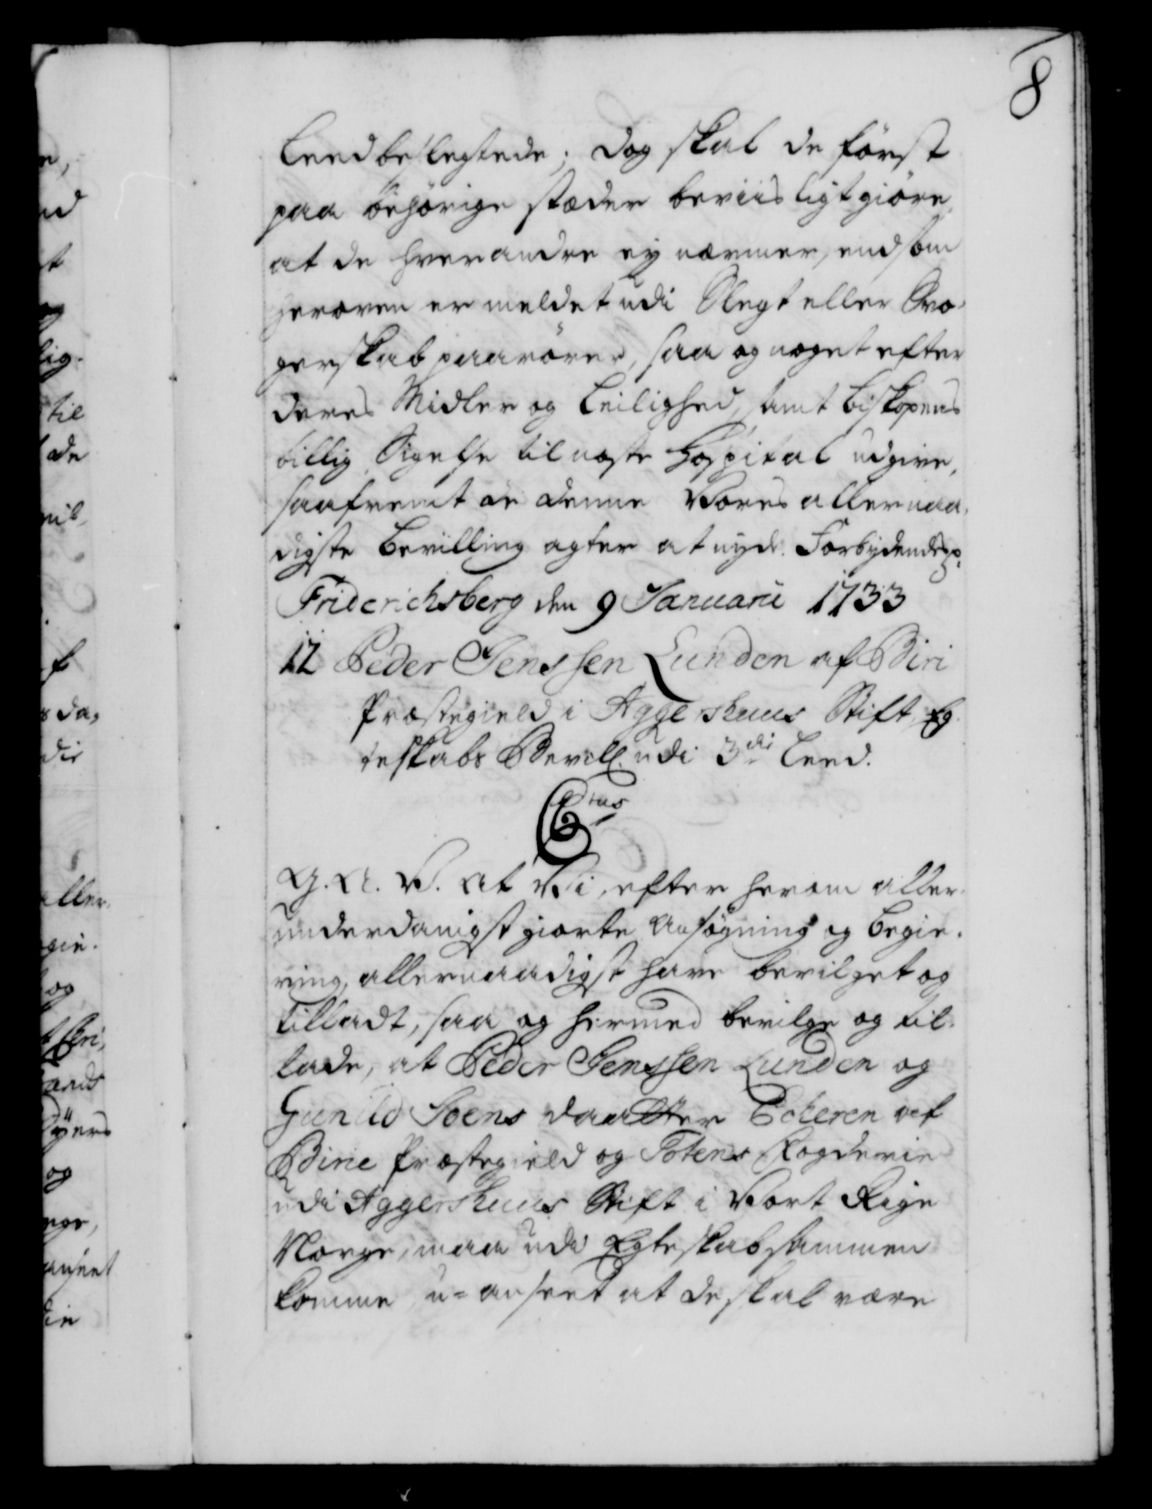 8
Leed beslegtede; dog skal de først
paa behørige stæder beviisligt giøre,
at de hverandre ej nærmer, end som
herover er meldet udi Slegt eller Svo-
gerskab paarører, saa og noget efter
deres Midler og Leilighed, samt biskopens
billig Sigelse til næste Hospital udgive,
saafremt de denne Vores allernaa-
digste Bevilling agter at nyde. Forbydendes p.
Friderichsberg den 9 Januarii 1733
12 Peder Jenssen Lunden af Biri
Præstegield i Aggershuus Stift, Eg-
teskabs Bevill. udi 3die Leed.
C6tus
G. A. V. At Vi, efter herom aller-
underdanigst giorte Ansøgning og begie-
ring, allernaadigst have bevilget og
tilladt, saa og hermed bevilge og til-
lade, at Peder Jenssen Lunden og
Gunild Soens daatter Eckeren af
Birie Præstegield og Totens Fogderie
udi Aggershuus Stift i Vort Rige
Norge, maa udi Egteskab sammen
komme, u-anseet at de skal være